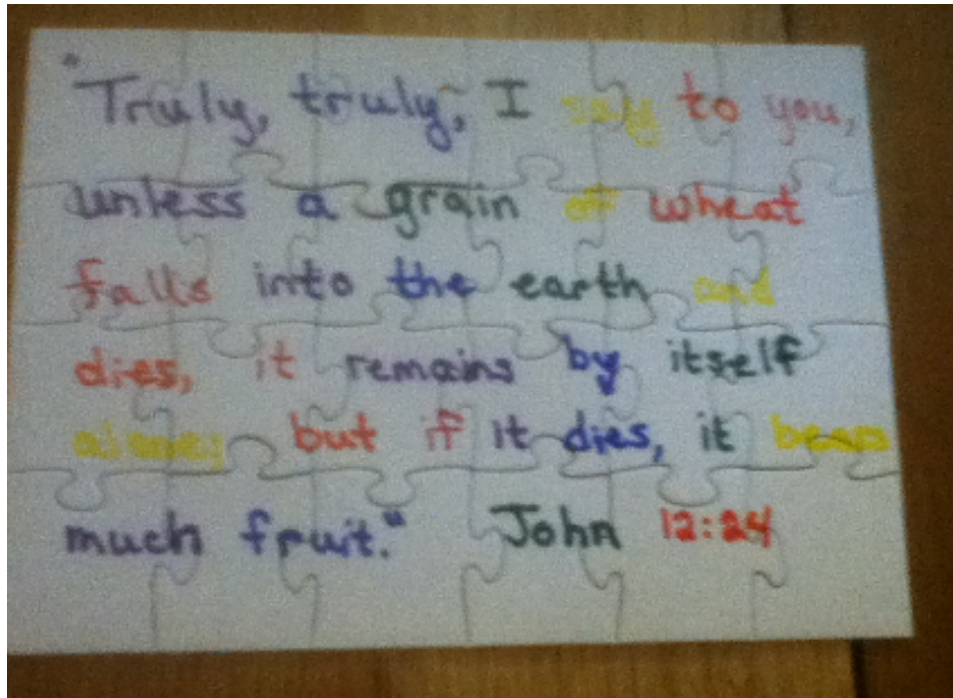 "Truly, truly, I say to you,
unless a grain of wheat
falls into the earth and
dies, it remains by itself
alone; but if it dies, it bears
much fruit." John 12:24